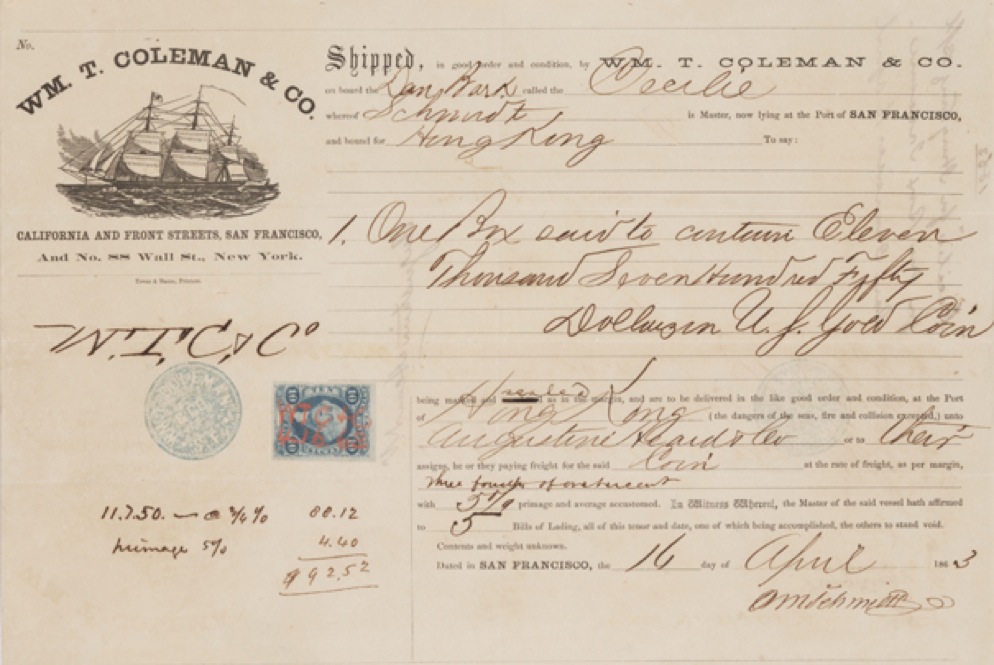 No.
WM. T. COLEMAN & CO.
CALIFORNIA AND FRONT STREETS, SAN FRANCISCO,
And No. 88 Wall St., New York.
Towne & Bacon, Printers.
Shipped, in good order and condition, by WM. T. COLEMAN & CO.
on board the Dan Bark called the Cecilie
whereof Schmidt is Master, now lying at the Port of SAN FRANCISCO,
and bound for Hong Kong To say:
1. One Box said to contain Eleven
Thousand Seven Hundred Fifty
Dollars in U. S. Gold Coin
being marked and sealed as in the margin, and are to be delivered in the like good order and condition, at the Port
of Hong Kong (the dangers of the seas, fire and collision excepted,) unto
Augustine Heard & Co or to their
assigns, he or they paying freight for the said Coin at the rate of freight, as per margin,
three fourths of one per cent
with 5% primage and average accustomed. In Witness Whereof, the Master of the said vessel hath affirmed
to 5 Bills of Lading, all of this tenor and date, one of which being accomplished, the others to stand void.
Contents and weight unknown.
Dated in SAN FRANCISCO, the 16 day of April 1863
Schmidt
TEN
11.750. — @ ¾% 88.12
primage 5% 4.40
$92,52